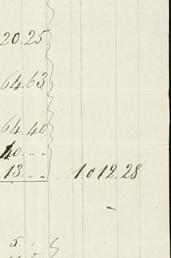 20.25
64.63
64.40
40. „ „
13. „ „ 1012.28
5. „